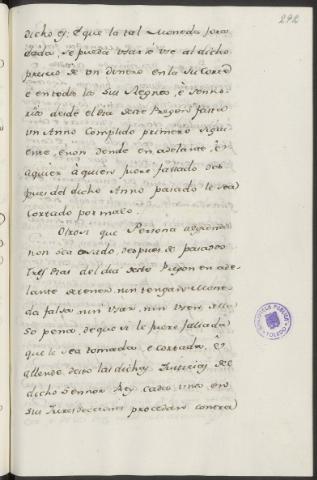 292
dicho es: E que la tal Moneda fora
dada, se pueda usar è use al dicho
precio de un dinero en la su Corte
è en todos los sus Regnos, è Senno-
rios desde el dia deste Pregon fasta
un Anno Complido primero sigui-
ente, è non dende en adelante, è à
aquier à quien fuere fallado des-
pues del dicho Anno pasado le sea
cortado por malo.
Otrosi que Persona alguna
non sea osado, despues de pasados
tres dias del dia deste Pregon en ade-
lante de tener nin tenga Mone-
da falsa nin usar, nin usen della
so pena, de que si le fuere fallada
que le sea tomada, e cortada, è
allende desto las dichas Justicias del
dicho Sennor Rey cada una en
sus Jurisdicciones procedan contra
BIBLIOTECA PUBLICA
TOLEDO